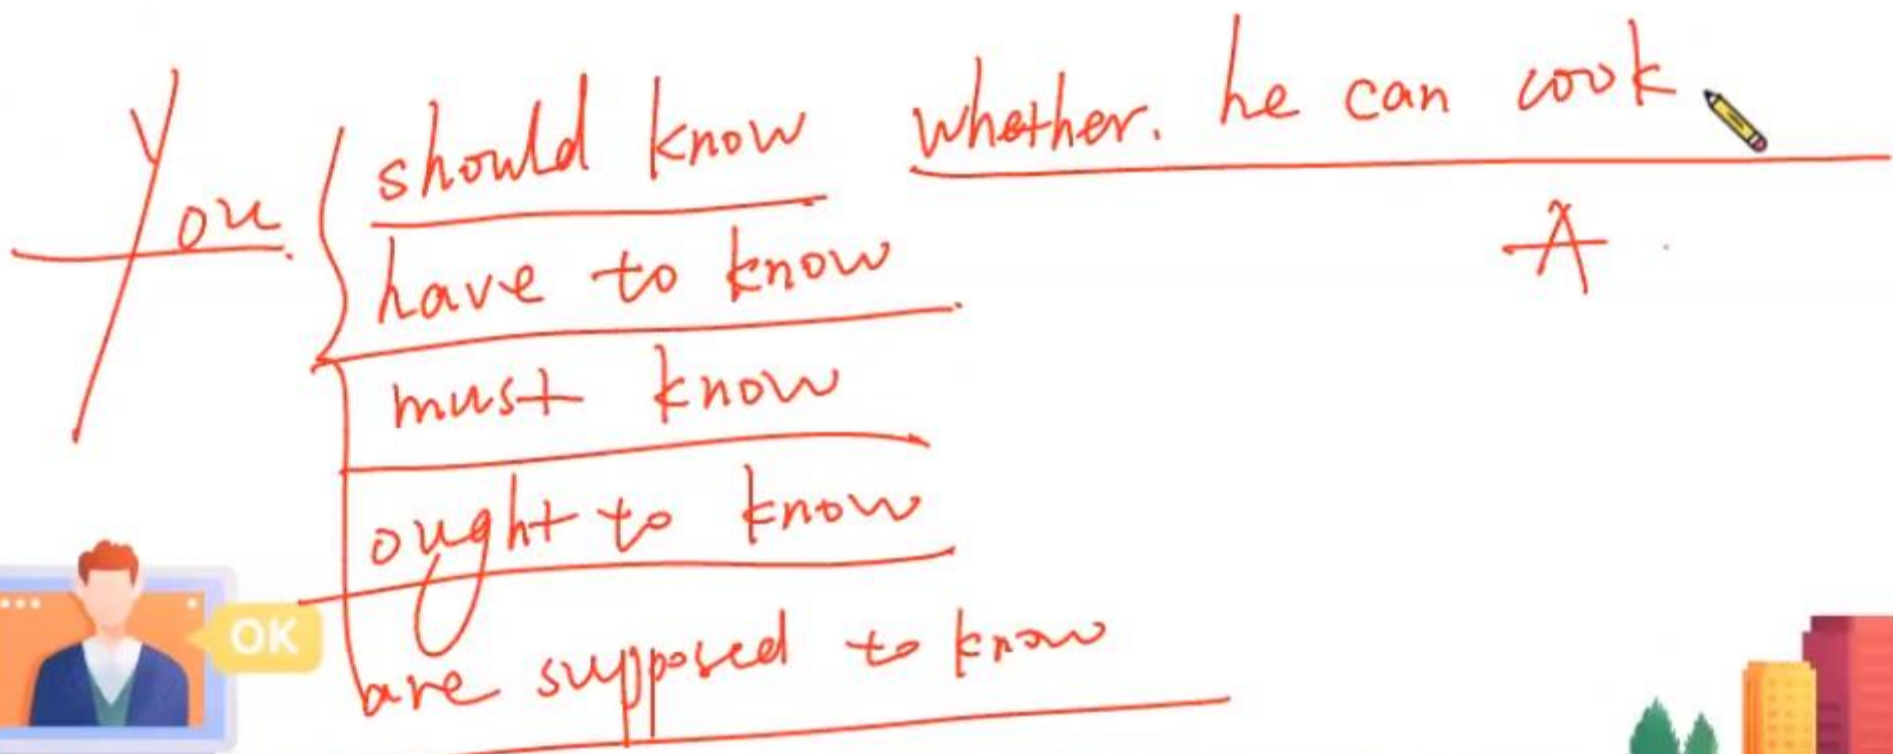 You. should know whether. he can cook
A
have to know
must know
ought to know
are supposed to know
OK